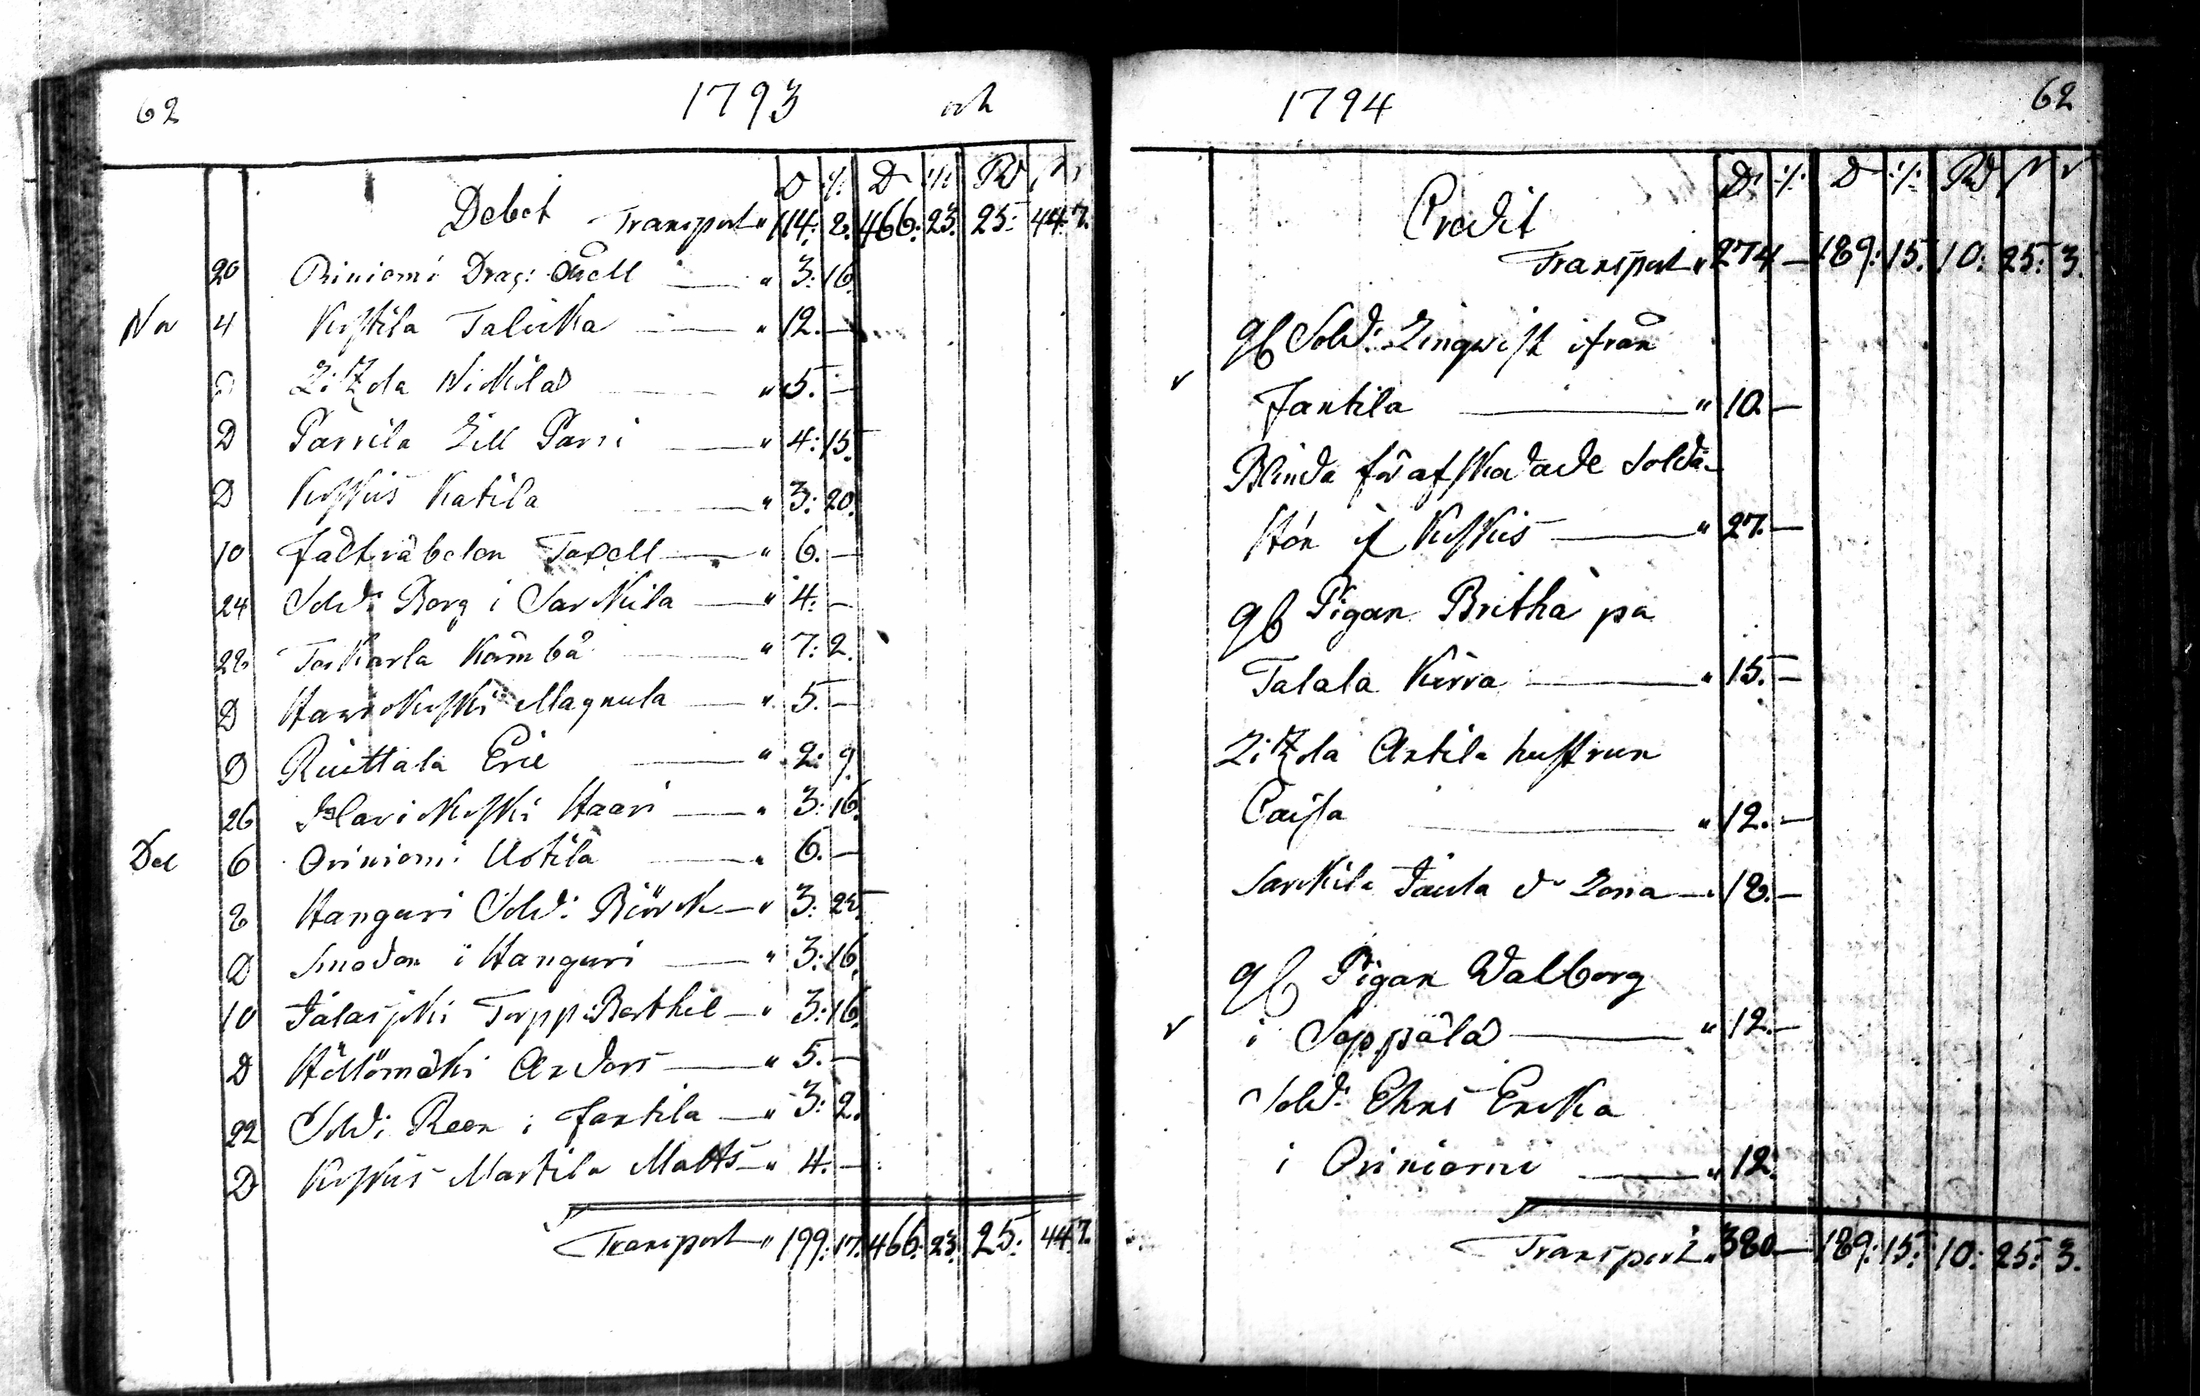 62 1793 och
D :/: D :/: Rd
Debet Transport " 114: 2. 466: 23. 25: 44. 7.
20 Oriniemi Drag: " 3: 16
Nov 4 Koskila Talicka " 12. —
D Nickilas " 5. —
D Parrila Lill Parri " 4: 15.
D Koskis Katila " 3: 20.
10 Taxell " 6. —
24 Sold: Borg i Sarckila " 4. —
28 Torkarla Kämbä " 7: 2.
D Hawiokoski Magnula " 5. —
D Ruottala Eric " 2: 9.
26 Haviokoski Haari " 3: 16.
Dec 6 Oriniemi Uotila " 6. —
8 Hanguri Sold: Biörck " 3: 25.
D Smeden i Hanguri " 3: 16.
10 Jalasjoki Torpp: Berthil " 3: 16.
D Höllömäki Anders " 5. —
22 Sold: Reen i Jantila " 3: 2.
D Koskis Martila Matts " 4. —
Transport " 199: 17. 466: 23. 25: 44. 7.
1794 62
D :/: D :/: Rd
Credit
Transport " 274 — 189: 15. 10: 25: 3.
Sold: Linqvist ifrån
Jantila " 10. —
Blinda för afskadade Solda-
ifr Koskis " 27. —
Pigan Britha på
Talala Kirra " 15. —
Antila hustrun
Caisa " 12. —
Sarckila Lena " 18. —
Pigan Walborg
i Seppälä " 12. —
Sold: Ehns Ericka
i Oriniemi " 12.
Transport " 380 — 189: 15. 10: 25: 3.